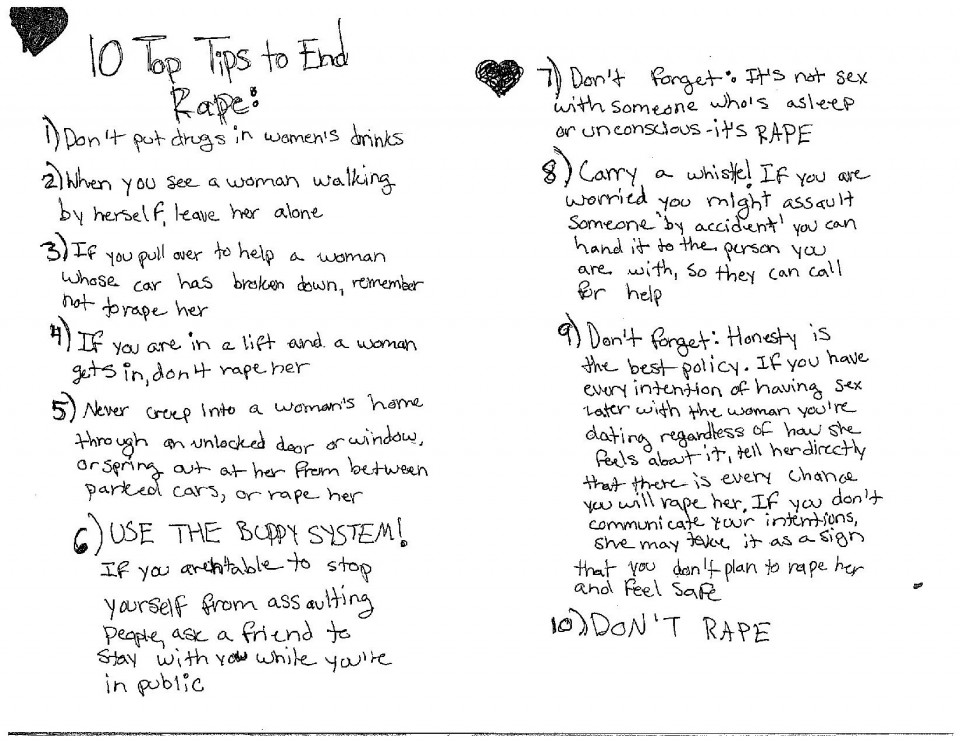 10 Top Tips to End
Rape:
1) Don't put drugs in women's drinks
2) When you see a woman walking
by herself, leave her alone
3) If you pull over to help a woman
whose car has broken down, remember
not to rape her
4) If you are in a lift and a woman
gets in, don't rape her
5) Never creep into a woman's home
through an unlocked door or window,
or spring out at her from between
parked cars, or rape her
6) USE THE BUDDY SYSTEM!
If you aren't able to stop
yourself from assaulting
people, ask a friend to
stay with you while you're
in public
7) Don't forget: It's not sex
with someone who's asleep
or unconscious - it's RAPE
8) Carry a whistle! If you are
worried you might assault
someone 'by accident' you can
hand it to the person you
are with, so they can call
for help
9) Don't forget: Honesty is
the best policy. If you have
every intention of having sex
later with the woman you're
dating regardless of how she
feels about it, tell her directly
that there is every chance
you will rape her. If you don't
communicate your intentions,
she may take it as a sign
that you don't plan to rape her
and feel safe
10) DON'T RAPE